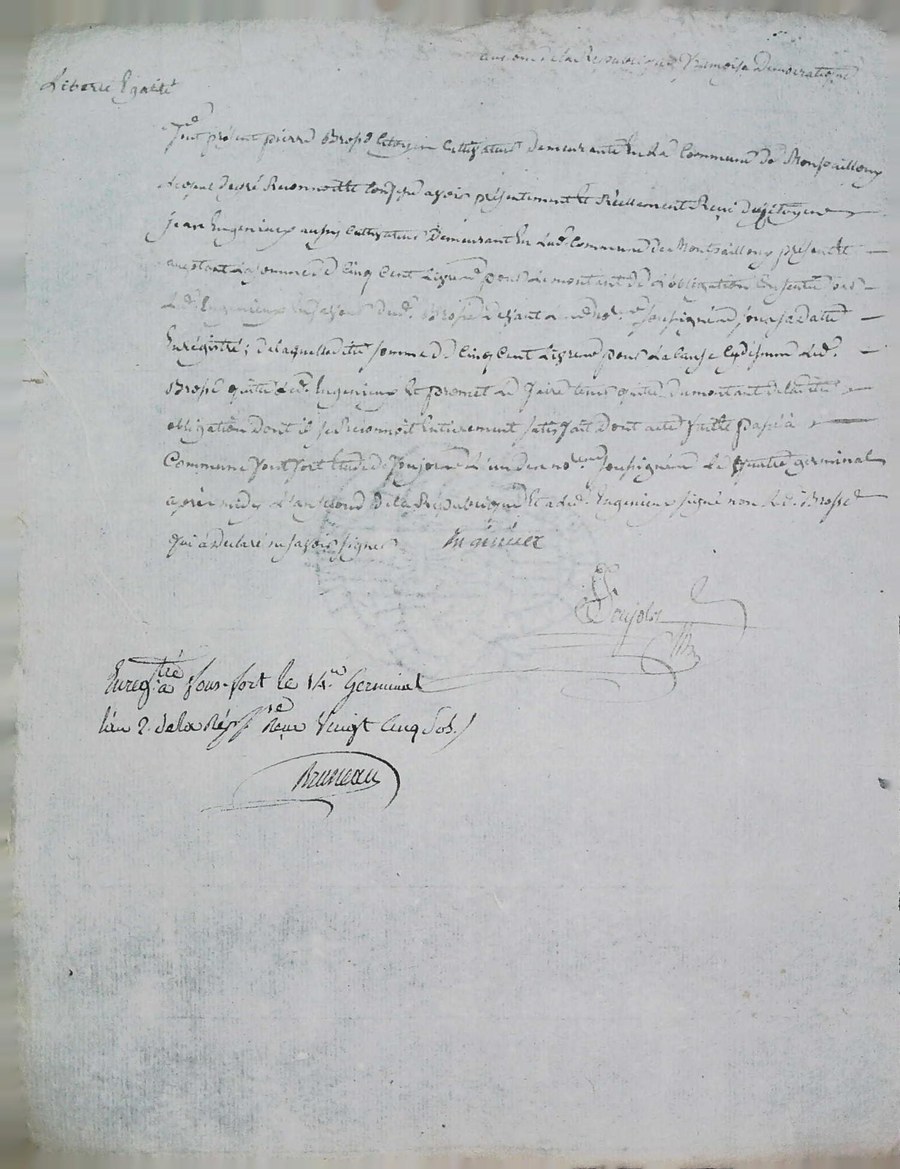 au nom de la Republique francoise Democratique
Liberté Egalité
fut présent pierre Brosse Citoyen Cultivateur demeurante En la Commune de Monpailloug
lequel degré Reconnoitte Confesse avoir présentement et Réellement Reçu du Citoyen
jean Ingenieux aussy Cultivateur demeurant En lad. Commune de Montpailloug présent et
aceptant la somme de Cinq Cent Livres pour le montant de l'obligation Consentie par
Led. Ingenieux en faveur dud. Brosse devant le no.re soussigné sous sa datte
Enregistré; de laquelle ditte somme de Cinq Cent Livres pour la Cause Cydessus Led.
Brosse quitte Led. Ingenieux Et promet Le faire tenir quitte du montant de laditte
obligation dont il se Reconnoit Entierement satisfait dont acte fait et passé à
Commune dont fort Etude de Soujole L'un des no.res soussigné Le quatre germinal
après midy L'an second de la République Et a Led. Ingenieux signé non Led. Brosse
qui à declaré ne savoir signer Ingénieux
Soujole
Enreg.tré à fous-fort le 14.me Germinal
l'an 2. de la Rép. Reçu Vingt Cinq Sols
Bruneau